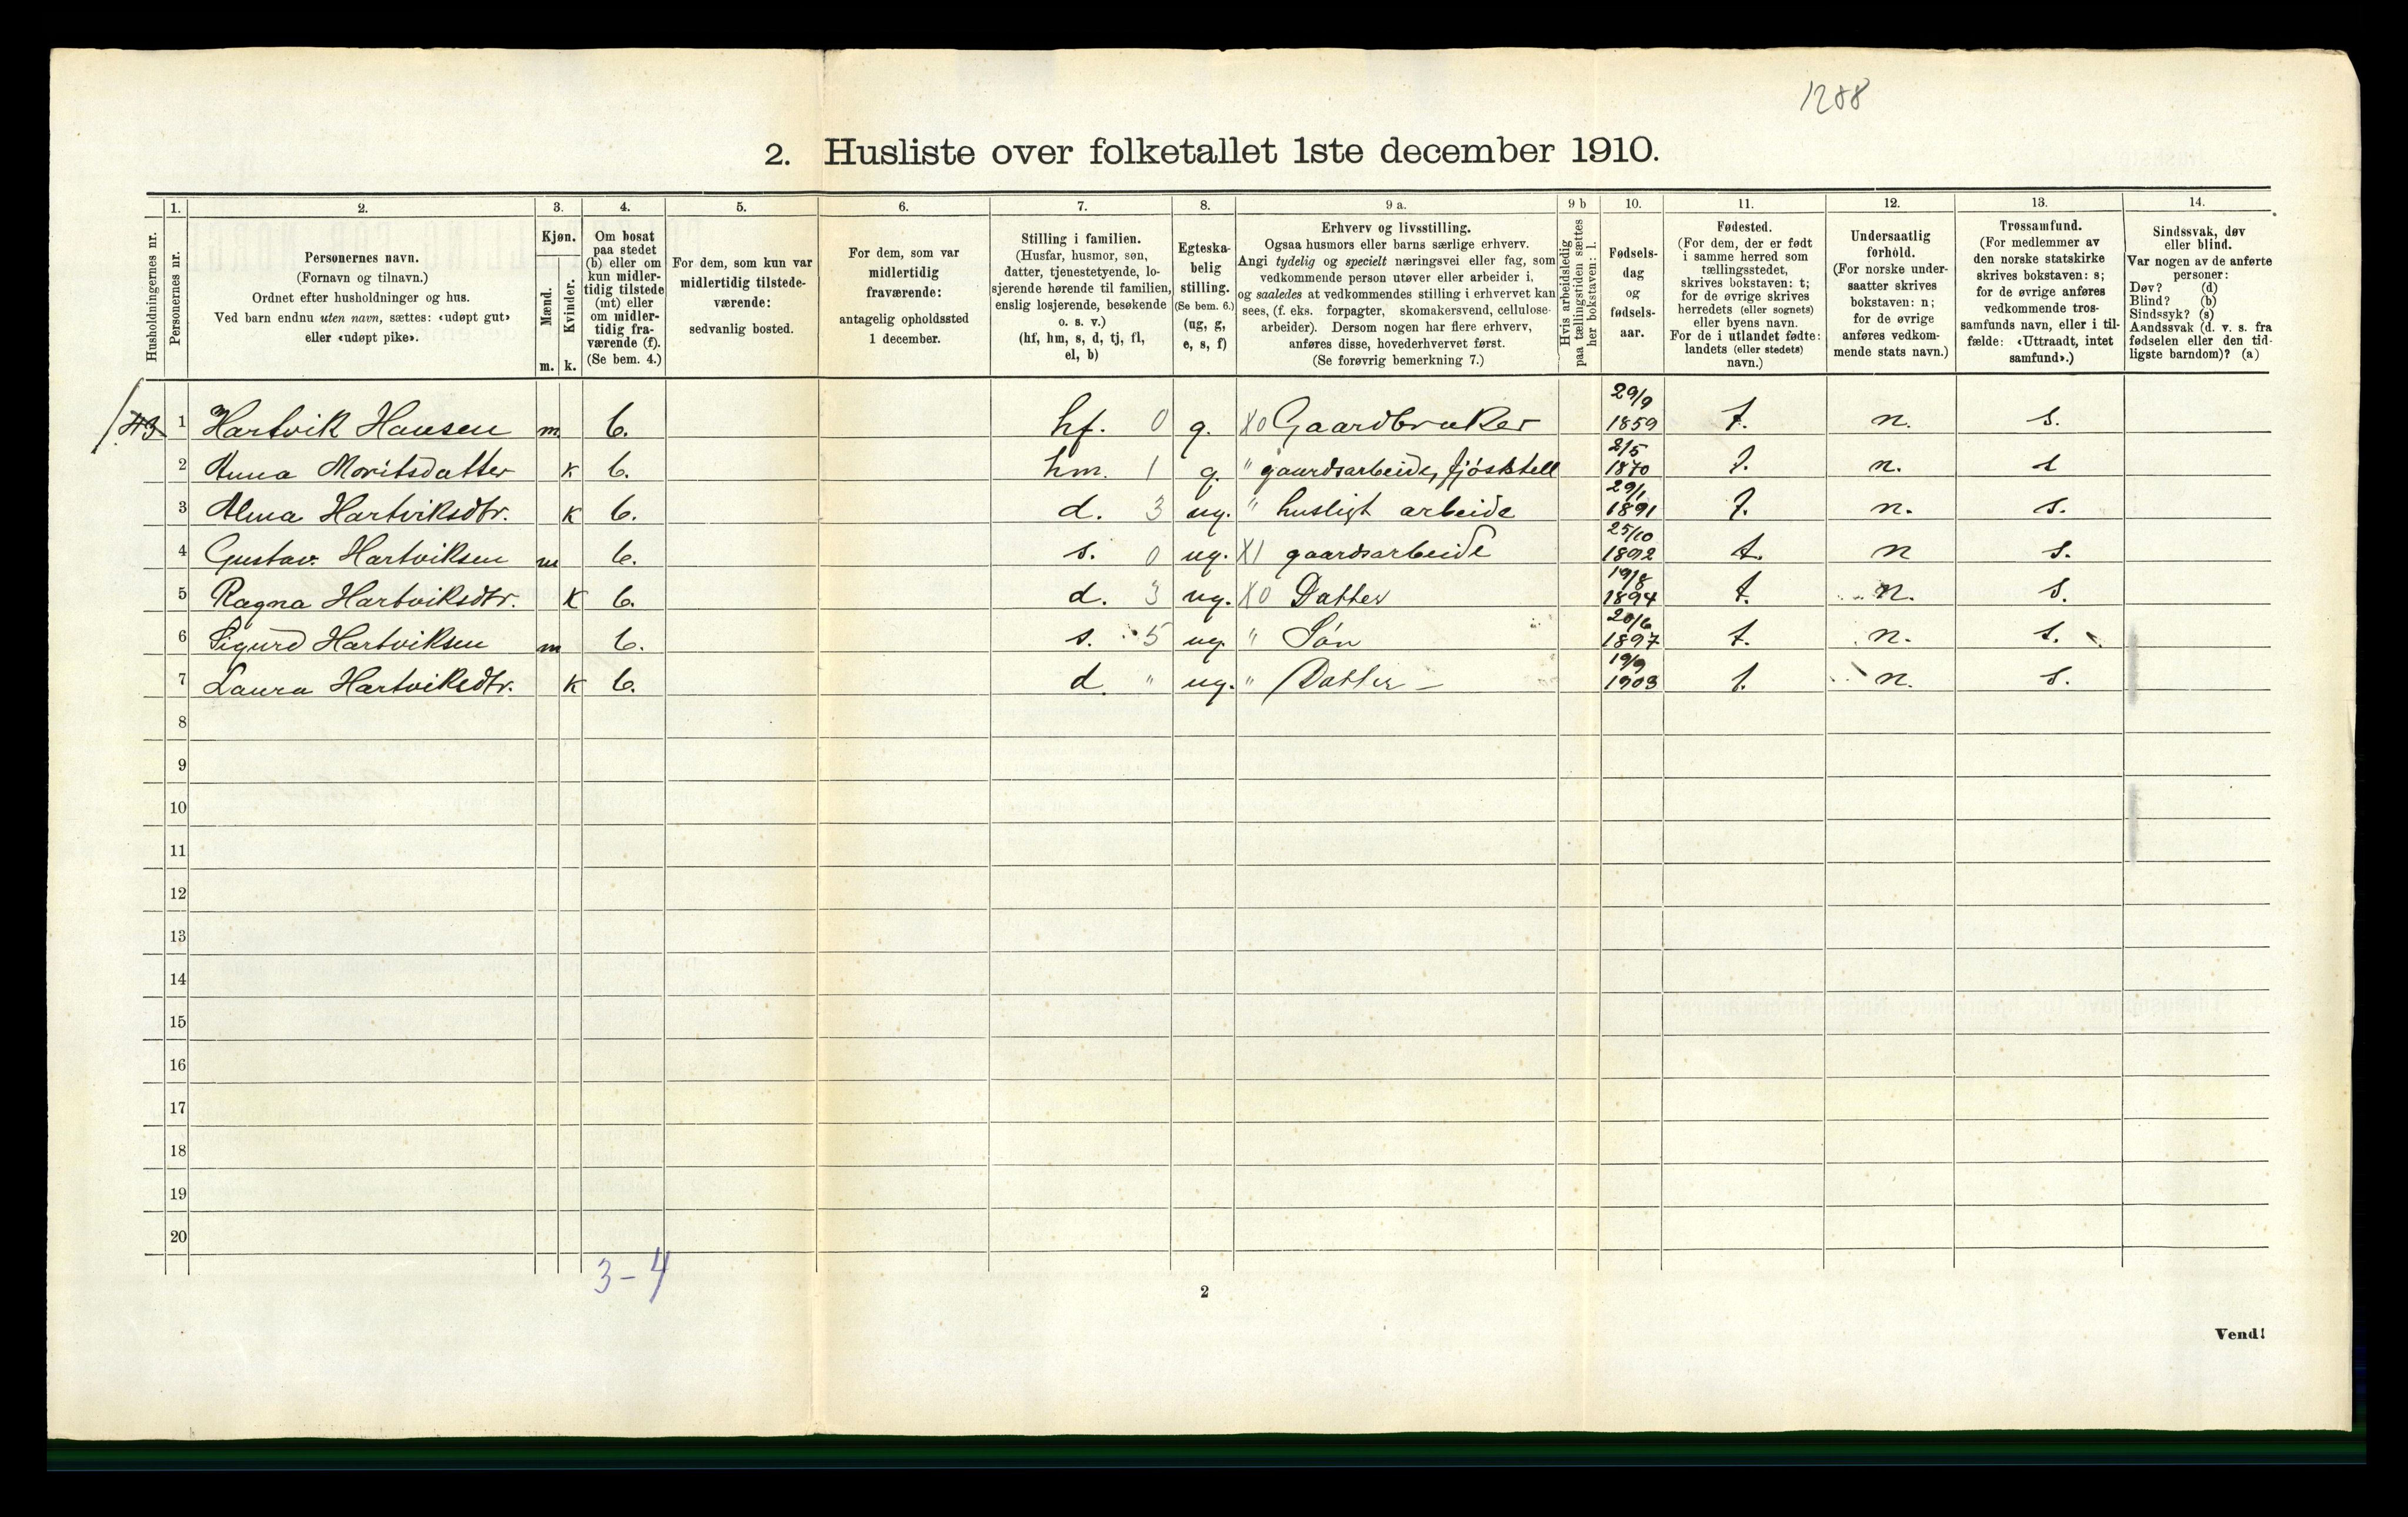 1288
2. Husliste over folketallet 1ste december 1910.
1. 2. 3. 4. 5. 6. 7. 8. 9 a. 9 b 10. 11. 12. 13. 14.
Husholdningernes nr.
Personernes nr.
Personernes navn.
(Fornavn og tilnavn.)
Ordnet efter husholdninger og hus.
Ved barn endnu uten navn, sættes: «udøpt gut»
eller «udøpt pike».
Kjøn.
Mænd.
Kvinder.
m. k.
Om bosat
paa stedet
(b) eller om
kun midler-
tidig tilstede
(mt) eller
om midler-
tidig fra-
værende (f).
(Se bem. 4.)
For dem, som kun var
midlertidig tilstede-
værende:
sedvanlig bosted.
For dem, som var
midlertidig
fraværende:
antagelig opholdssted
1 december.
Stilling i familien.
(Husfar, husmor, søn,
datter, tjenestetyende, lo-
sjerende hørende til familien,
enslig losjerende, besøkende
o. s. v.)
(hf, hm, s, d, tj, fl,
el, b)
Egteska-
belig
stilling.
(Se bem. 6.)
(ug, g,
e, s, f)
Erhverv og livsstilling.
Ogsaa husmors eller barns særlige erhverv.
Angi tydelig og specielt næringsvei eller fag, som
vedkommende person utøver eller arbeider i,
og saaledes at vedkommendes stilling i erhvervet kan
sees, (f. eks. forpagter, skomakersvend, cellulose-
arbeider). Dersom nogen har flere erhverv,
anføres disse, hovederhvervet først.
(Se forøvrig bemerkning 7.)
Hvis arbeidsledig
paa tællingstiden sættes
her bokstaven: l.
Fødsels-
dag
og
fødsels-
aar.
Fødested.
(For dem, der er født
i samme herred som
tællingsstedet,
skrives bokstaven: t;
for de øvrige skrives
herredets (eller sognets)
eller byens navn.
For de i utlandet fødte:
landets (eller stedets)
navn.)
Undersaatlig
forhold.
(For norske under-
saatter skrives
bokstaven: n;
for de øvrige
anføres vedkom-
mende stats navn.)
Trossamfund.
(For medlemmer av
den norske statskirke
skrives bokstaven: s;
for de øvrige anføres
vedkommende tros-
samfunds navn, eller i til-
fælde: «Uttraadt, intet
samfund».)
Sindssvak, døv
eller blind.
Var nogen av de anførte
personer:
Døv? (d)
Blind? (b)
Sindssyk? (s)
Aandssvak (d. v. s. fra
fødselen eller den tid-
ligste barndom)? (a)
1 Hartvik Hansen m b. hf. 0 g. X0 Gaardbruker 29/9 1859 t. n. s.
2 Anna Moritsdatter k b. hm. 1 g. " gaardsarbeide, fjøsstell 2/5 1870 t. n. s
3 Alma Hartviksdtr. k b. d. 3 ug. " husligt arbeide 29/1 1891 t. n. s.
4 Gustav Hartviksen m b. s. 0 ug. X1 gaardsarbeide 25/10 1892 t. n s.
5 Ragna Hartviksdtr. k b. d. 3 ug. X0 Datter 19/8 1894 t. n. s.
6 Sigurd Hartviksen m b. s. 5 ug. " Søn 20/6 1897 t. n. s.
7 Laura Hartviksdtr. k b. d. " ug. " Datter – 19/9 1903 t. n. s.
8
9
10
11
12
13
14
15
16
17
18
19
20
3-4
2
Vend!